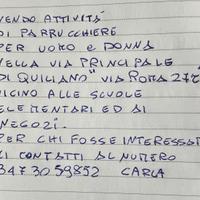 VENDO ATTIVITÁ
DI PARRUCCHIERE
PER UOMO E DONNA
NELLA VIA PRINCIPALE
DI QUILIANO" VIA ROMA 27
VICINO ALLE SCUOLE
ELEMENTARI ED AI
NEGOZI.
PER CHI FOSSE INTERESSAT
CI CONTATTI AL NUMERO
3473059852 CARLA